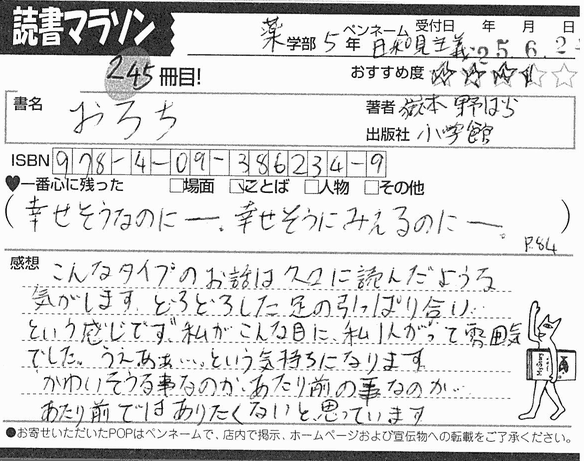 読書マラソン
薬学部 5年 ペンネーム 日和見主義 受付日 年 月 日
25.6.2
245冊目!
おすすめ度 ☆☆☆☆☆
書名 おろち
著者 嶽本野ばら
出版社 小学館
ISBN 978-4-09-386234-9
♥一番心に残った □場面 □ことば □人物 □その他
(幸せそうなのにー。幸せそうにみえるのにー。)
P.84
感想
こんなタイプのお話は久々に読んだような
気がします。どろどろした足の引っぱり合い…
という感じです。私がこんな目に、私1人がって雰囲気
でした。うえあぁ…、という気持ちになります
かわいそうな事なのか、あたり前の事なのか…
あたり前ではありたくないと、思っています
●お寄せいただいたPOPはペンネームで、店内で掲示、ホームページおよび宣伝物への転載をご了承ください。